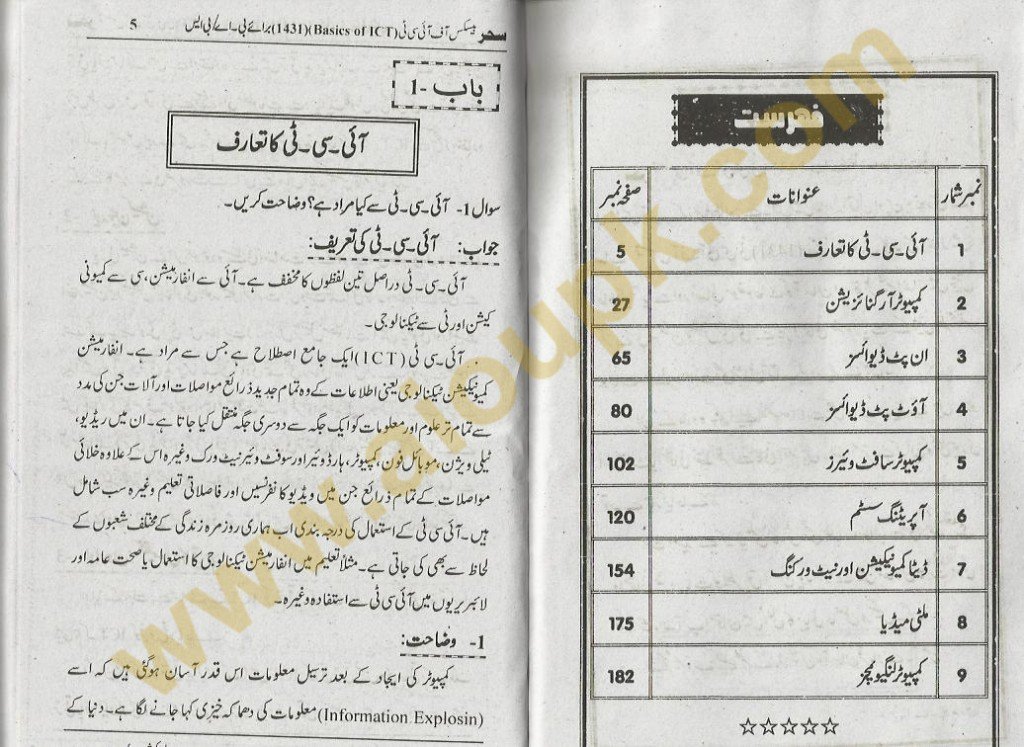 فہرست
نمبر شمار عنوانات صفحہ نمبر
1 آئی ۔ سی ۔ ٹی کا تعارف 5
2 کمپیوٹر آرگنائزیشن 27
3 ان پٹ ڈیوائسز 65
4 آؤٹ پٹ ڈیوائسز 80
5 کمپیوٹر سافٹ وئیرز 102
6 آپریٹنگ سسٹم 120
7 ڈیٹا کمیونیکیشن اور نیٹ ورکنگ 154
8 ملٹی میڈیا 175
9 کمپیوٹر لنگیویجز 182
☆☆☆☆☆
سحر بیسکس آف آئی سی ٹی (Basics of ICT)(1431) برائے بی۔اے/بی ایس 5
باب -1
آئی ۔ سی ۔ ٹی کا تعارف
سوال 1- آئی ۔ سی ۔ ٹی سے کیا مراد ہے؟ وضاحت کریں۔
جواب: آئی ۔ سی ۔ ٹی کی تعریف:
آئی ۔ سی ۔ ٹی دراصل تین لفظوں کا مخفف ہے۔ آئی سے انفارمیشن، سی سے کمیونی
کیشن اور ٹی سے ٹیکنالوجی۔
آئی ۔ سی ۔ ٹی (ICT) ایک جامع اصطلاح ہے جس سے مراد ہے۔ انفارمیشن
کمیونیکیشن ٹیکنالوجی یعنی اطلاعات کے وہ تمام جدید ذرائع مواصلات اور آلات جن کی مدد
سے تمام تر علوم اور معلومات کو ایک جگہ سے دوسری جگہ منتقل کیا جاتا ہے۔ ان میں ریڈیو،
ٹیلی ویژن، موبائل فون، کمپیوٹر، ہارڈ وئیر اور سوفٹ وئیر نیٹ ورک وغیرہ اس کے علاوہ خلائی
مواصلات کے تمام ذرائع جن میں ویڈیو کانفرنسیں اور فاصلاتی تعلیم وغیرہ سب شامل
ہیں۔ آئی سی ٹی کے استعمال کی درجہ بندی اب ہماری روزمرہ زندگی کے مختلف شعبوں کے
لحاظ سے بھی کی جاتی ہے۔ مثلاً تعلیم میں انفارمیشن ٹیکنالوجی کا استعمال یا صحت عامہ اور
لائبریریوں میں آئی سی ٹی سے استفادہ وغیرہ۔
1- وضاحت:
کمپیوٹر کی ایجاد کے بعد ترسیل معلومات اس قدر آسان ہوگئی ہیں کہ اسے
(Information Explosin) معلومات کی دھماکہ خیزی کہا جانے لگا ہے۔ دنیا کے
www.aioupk.com